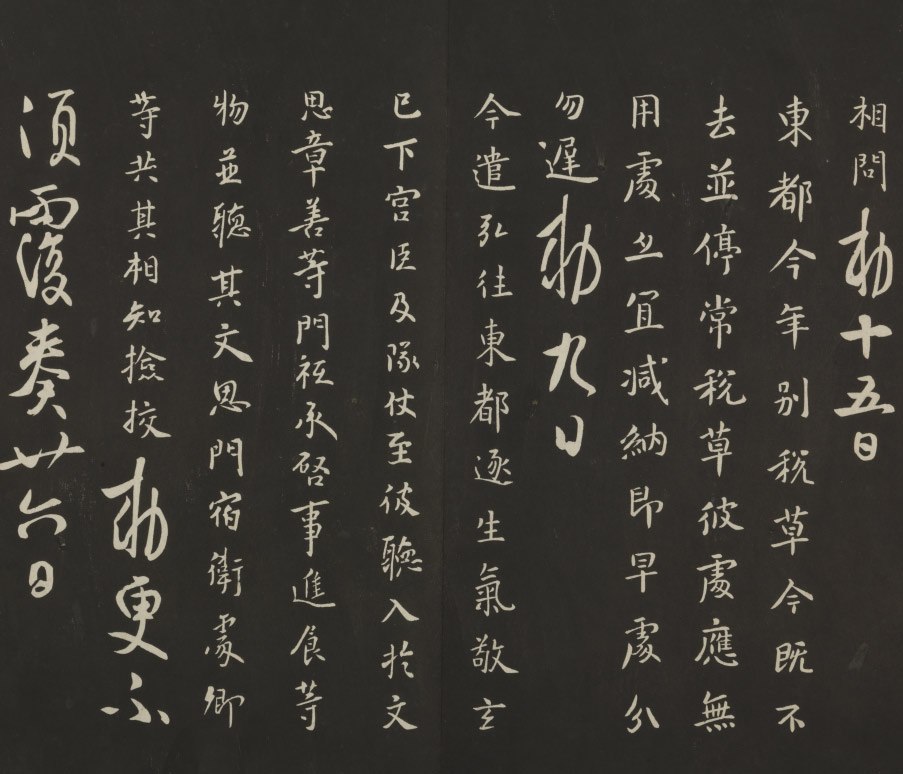 相問敕十五日
東都今年別税草今既不
去並停常税草彼處應無
用處亦宜減納即早處分
勿遲敕九日
今遣弘往東都逐生氣敬玄
已下宮臣及隊仗至彼聽入於文
思章善等門祗承啓事進食等
物並聽其文思門宿衛處卿
等共其相知撿挍敕更不
須覆奏廿六日